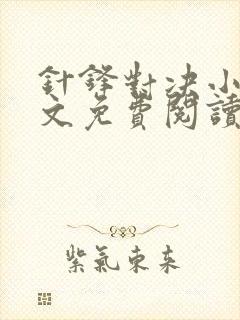 針鋒對決小
文免費閱讀
紫氣東來